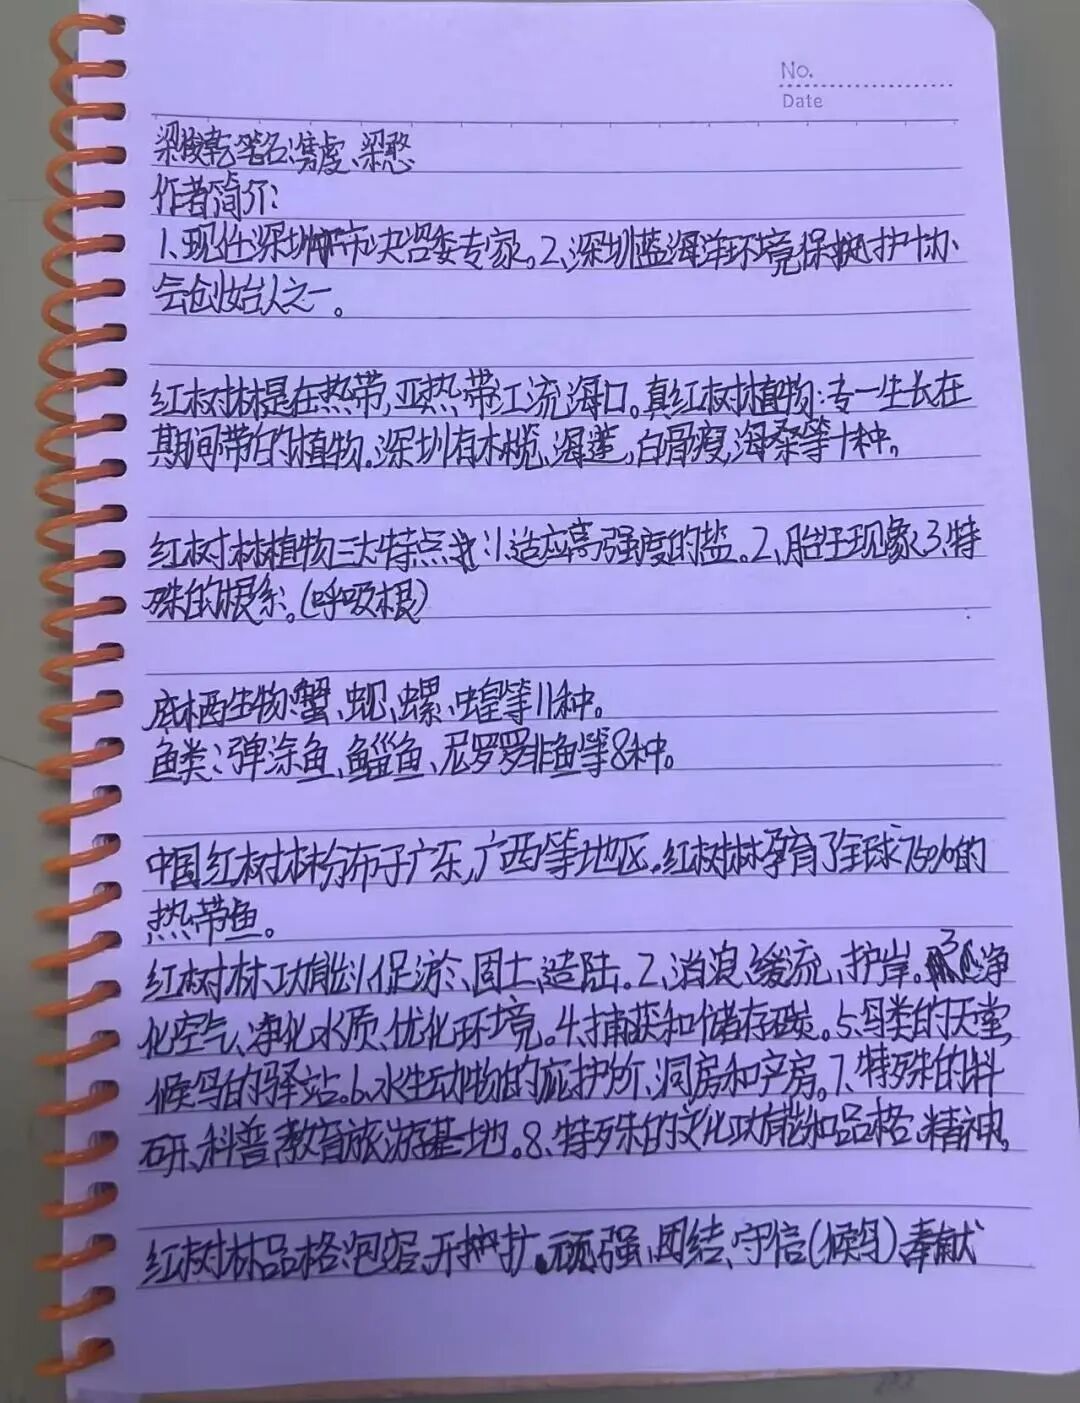 No.
Date
梁俊乾 笔名:隽虔、梁憨
作者简介:
1、现任深圳市决咨委专家。2、深圳蓝海洋环境保护协
会创始人之一。
红树林是在热带,亚热带江流海口。真红树植物:专一生长在
期间带的植物。深圳有木榄、海莲,白骨瘦,海桑等十种。
红树林植物三大特点:1.适应高强度的盐。2、胎生现象、3、特
殊的根系。(呼吸根)
底栖生物:蟹、蚬、螺、蝗等11种。
鱼类:弹涂鱼、鲻鱼、尼罗罗非鱼等8种。
中国红树林分布于广东,广西等地区。红树林孕育了全球75%的
热带鱼。
红树林功能:1、促淤、固土、造陆。2、消浪、缓流、护岸。3、净
化空气、净化水质、优化环境。4、捕获和储存碳。5、鸟类的天堂,
候鸟的驿站。6、水生动物的庇护所、洞房和产房。7、特殊的科
研、科普教育旅游基地。8、特殊的文化功能和品格、精神。
红树林品格:包容、开扩、顽强、团结、守信(候鸟)奉献